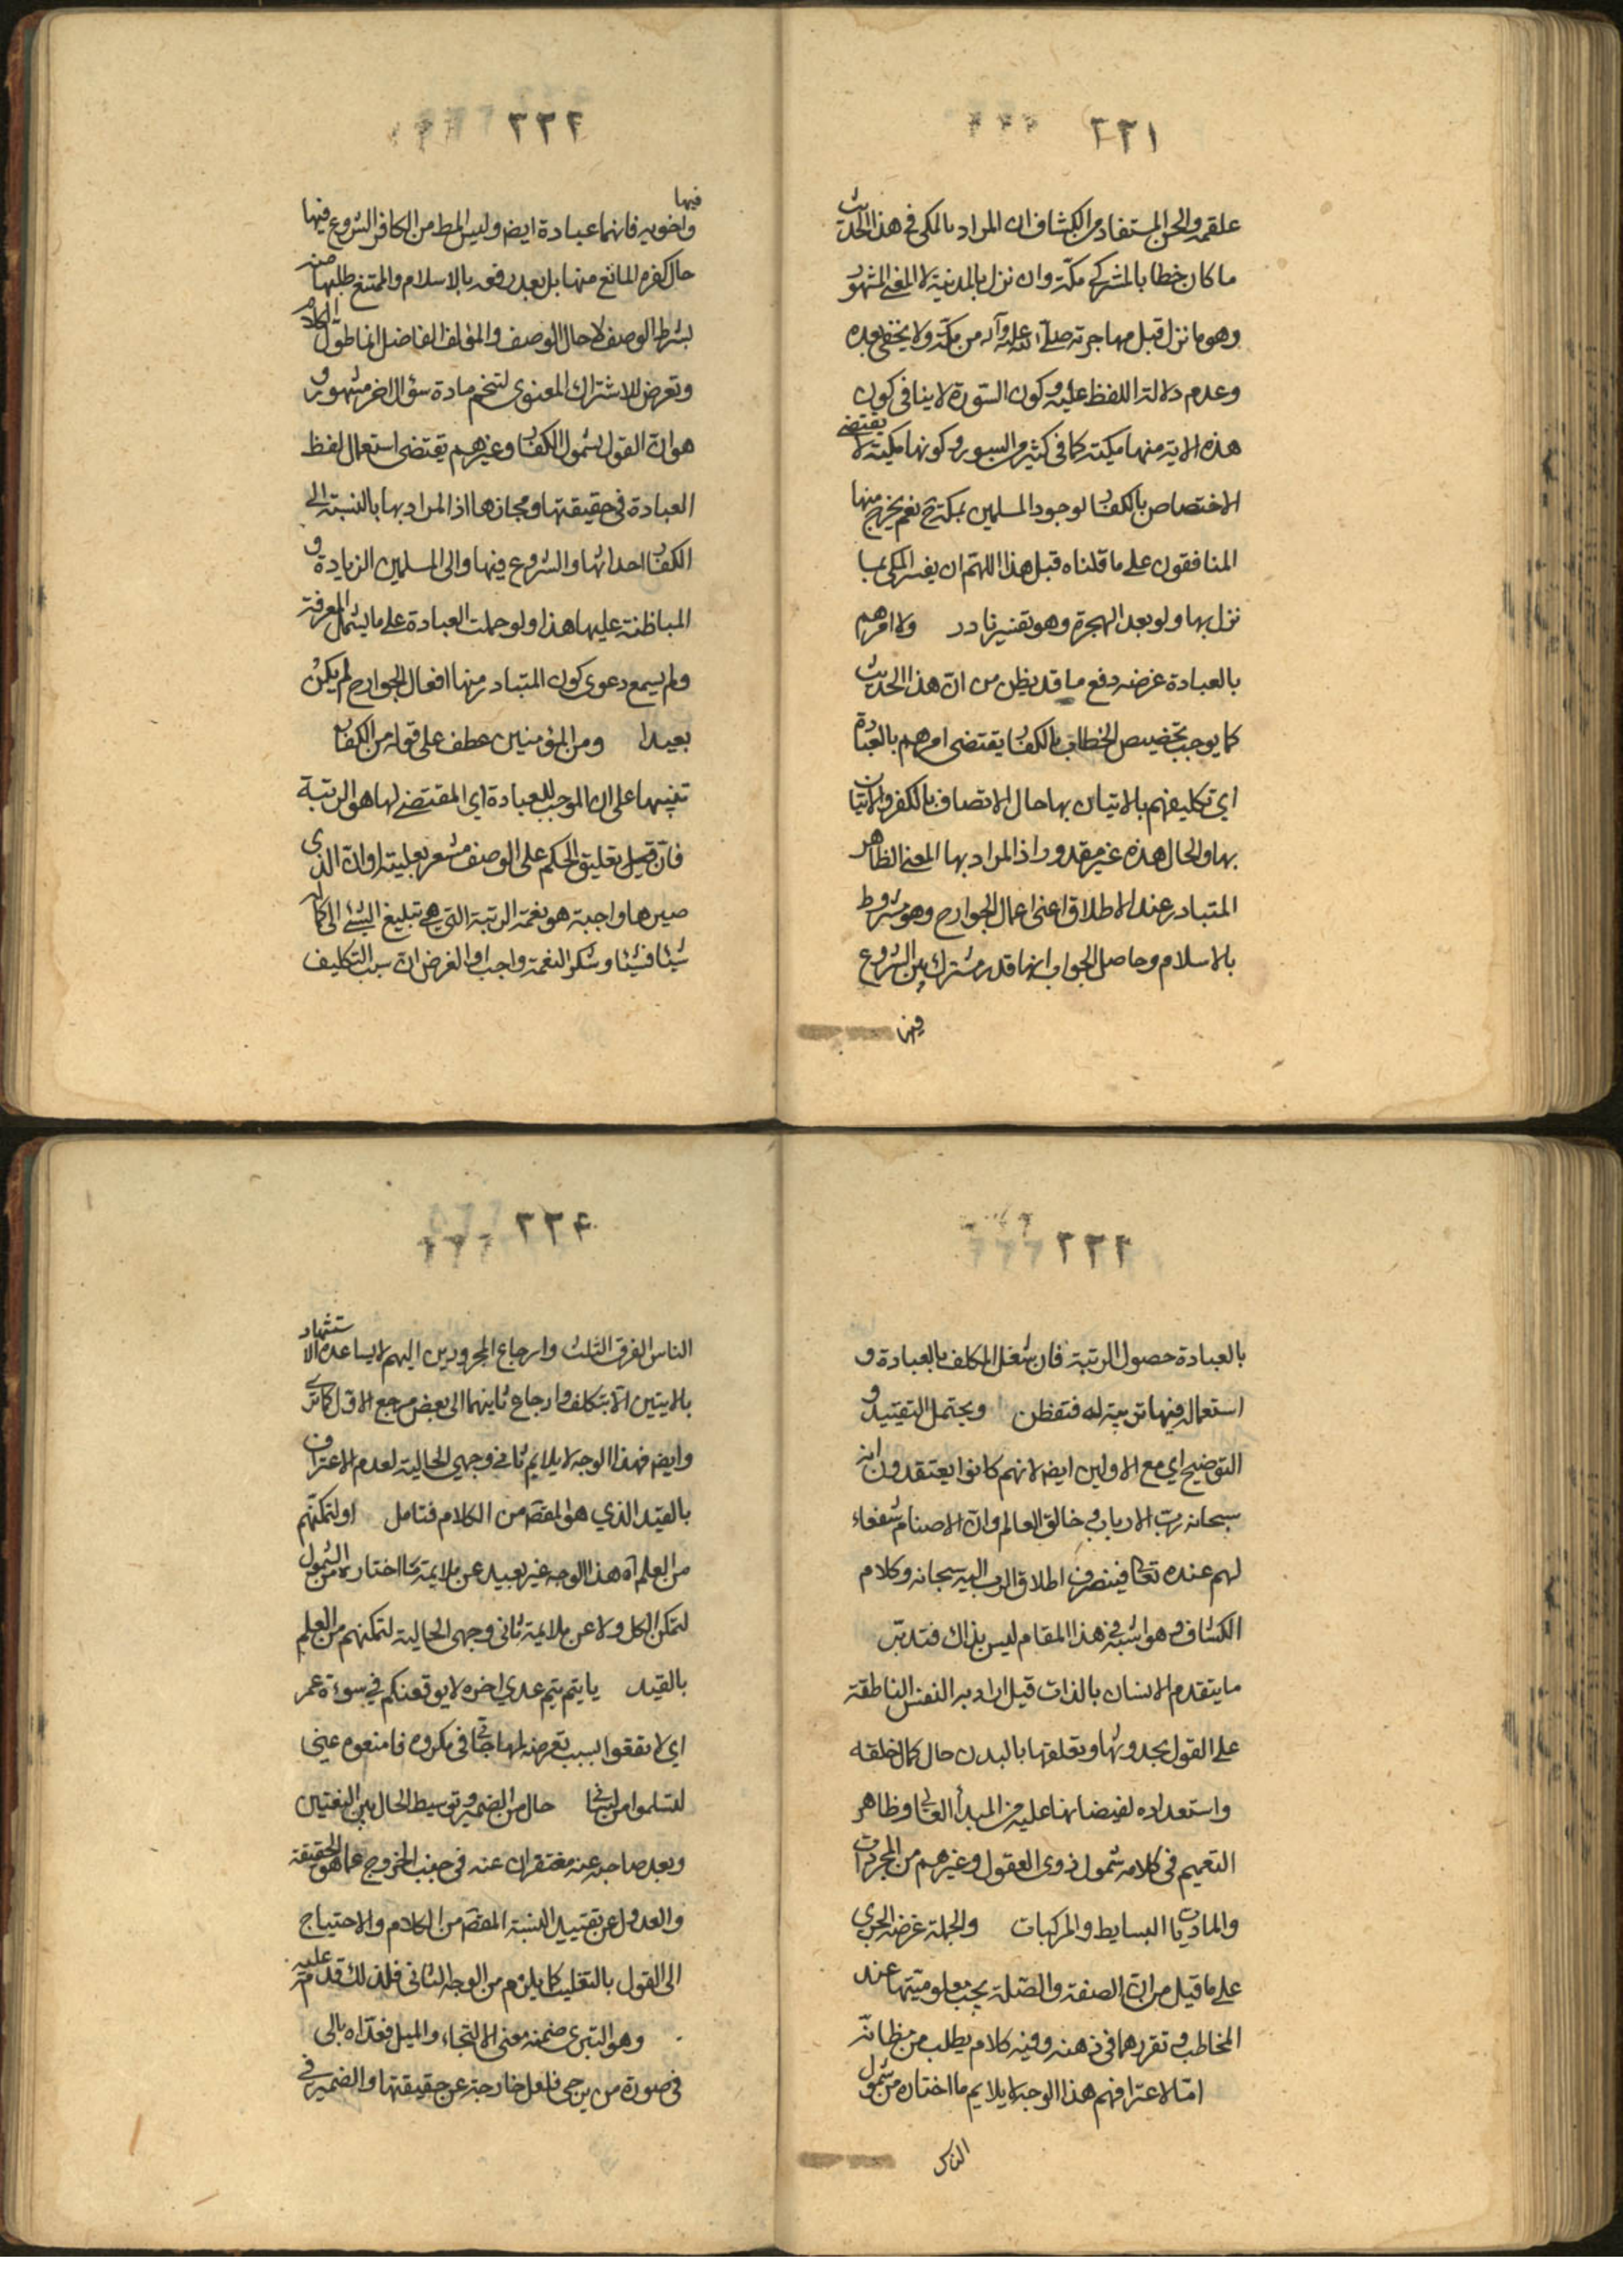 ٢٢١
علقمه والحسن المستفاد من الكشاف ان المراد بالمكى فى هذا الحديث
ما كان خطابا لمشركى مكّة وان نزل بالمدينة لا المعنى المشهور
وهو ما نزل قبل مهاجرته صلى الله عليه وآله من مكّة ولا يخفى بعده
وعدم دلالة اللفظ عليه وكون السّورة لا ينافى كون
هذه الاية منها مكية كما فى كثير من السور وكونها مكية لا يقتضى
الاختصاص بالكفار لوجود المسلمين بمكة ح نعم يخرج منها
المنافقون على ما قلناه قبل هذا اللهمّ ان يفسر المكى بما
نزل بها ولو بعد الهجرة وهو تفسير نادر ولا امرهم
بالعبادة غرضه دفع ما قد يظن من انّ هذا الحديث
كما يوجب تخصيص الخطاب بالكفار يقتضى امرهم بالعبادة
اى تكليفهم بالاتيان بها حال الاتصاف بالكفر والاتيان
بها والحال هذه غير مقدور اذ المراد بها المعنى الظاهر
المتبادر عند الاطلاق اعنى اعمال الجوارح وهو مشروط
بالاسلام وحاصل الجواب انها قدر مشترك بين الشروع
فيها
٢٢٢
فيها
واخويه فانهما عبادة ايض وليس المط من الكافر الشروع فيها
حال كفره المانع منها بل بعد رفعه بالاسلام والممتنع طلبها منه
بشرط الوصف لا حال الوصف والمؤلف الفاضل انما طول الكلام
وتعرض للاشتراك المعنوى لتخم مادة سؤال اخر مشهور و
هو ان القول بشمول الكفار وغيرهم يقتضى استعمال لفظ
العبادة فى حقيقتها ومجازها اذ المراد بها بالنسبة الى
الكفار احداثها والشروع فيها والى المسلمين الزيادة و
المباظنة عليها هذا ولو حملت العبادة على ما يشمل المعرفة
ولم يسمع دعوى كون المتبادر منها افعال الجوارح لم يكن
بعيدا ومن المؤمنين عطف على قوله من الكفار
تنبيها على ان الموجب للعبادة اى المقتضى لها هو الربّية
فانّ قيل تعليق الحكم على الوصف مشعر بعلّيته وانّ الذى
صيرها واجبة هو نعمة الربّية التى هى تبليغ الشئ الى كماله
شيئا فشيئا وشكر النعمة واجب او الغرض ان سبب التكليف
٢٢٣
بالعبادة حصول الربّية فان شغل المكلف بالعبادة و
استعماله فيها تربية له فتفطن ويحتمل التقييد و
التوضيح اى مع الاولين ايض لانهم كانوا يعتقدون انه
سبحانه ربّ الارباب وخالق العالم وانّ الاصنام شفعاء
لهم عنده تعالى فينصرف اطلاق الرب اليه سبحانه وكلام
الكشاف فى هذا المقام ليس بذاك فتدبّر
ما يتقدم الانسان بالذات قيل اراد به النفس الناطقة
على القول بحدوثها وتعلقها بالبدن حال كمال خلقه
واستعداده لفيضانها عليه من المبدأ العالى وظاهر
التعميم فى كلامه شمول ذوى العقول وغيرهم من المجردات
والماديات البسايط والمركبات والجملة غرضه الجرى
على ما قيل من ان الصفة والصّلة يجب معلوميّتها عند
المخاطب وتقررهما فى ذهنه وفيه كلام يطلب من مظانّه
امّا لاعترافهم هذا الوجه لا يلايم ما اختاره من شمول
الناس
٢٢٤
الناس الفرق الثلث وارجاع المجرورين اليهم لا يساعده الاستشهاد
بالايتين الّا بتكلف وارجاع ثانيهما الى بعض مرجع الاوّل كما ترى
وايض فهذا الوجه لا يلايم ثانى وجهى الحالية لعدم الاعتراف
بالقيد الذي هو المقصد من الكلام فتامل او لتمكنهم
من العلم آه هذا الوجه غير بعيد عن ملايمة ما اختاره من الشمول
لتمكن الكل ولا عن ملايمة ثانى وجهى الحالية لتمكنهم من العلم
بالقيد يا يتم تيم عدي اخره لا يوقعنكم في سوءة عمر
اي لا تقعوا بسبب تعرضه لمهاجاتى فى مكروه فامنعوه عنى
لتسلموا من لسانى حال من الضمير وتوسيط الحال بين النعتين
وبعد صاحبه عنه مغتفران عنه فى جنب الخروج عما هو الحقيقة
والعدول عن تقييد النسبة المقصد من الكلام والاحتياج
الى القول بالتغليب كما يلزم من الوجه الثانى فلذلك قدّم عليه
وهو التبرى ضمنه معنى الالتجاء والميل فعدّاه بالى
فى صورة من يرجى فلعل خارجة عن حقيقتها والضمير فى